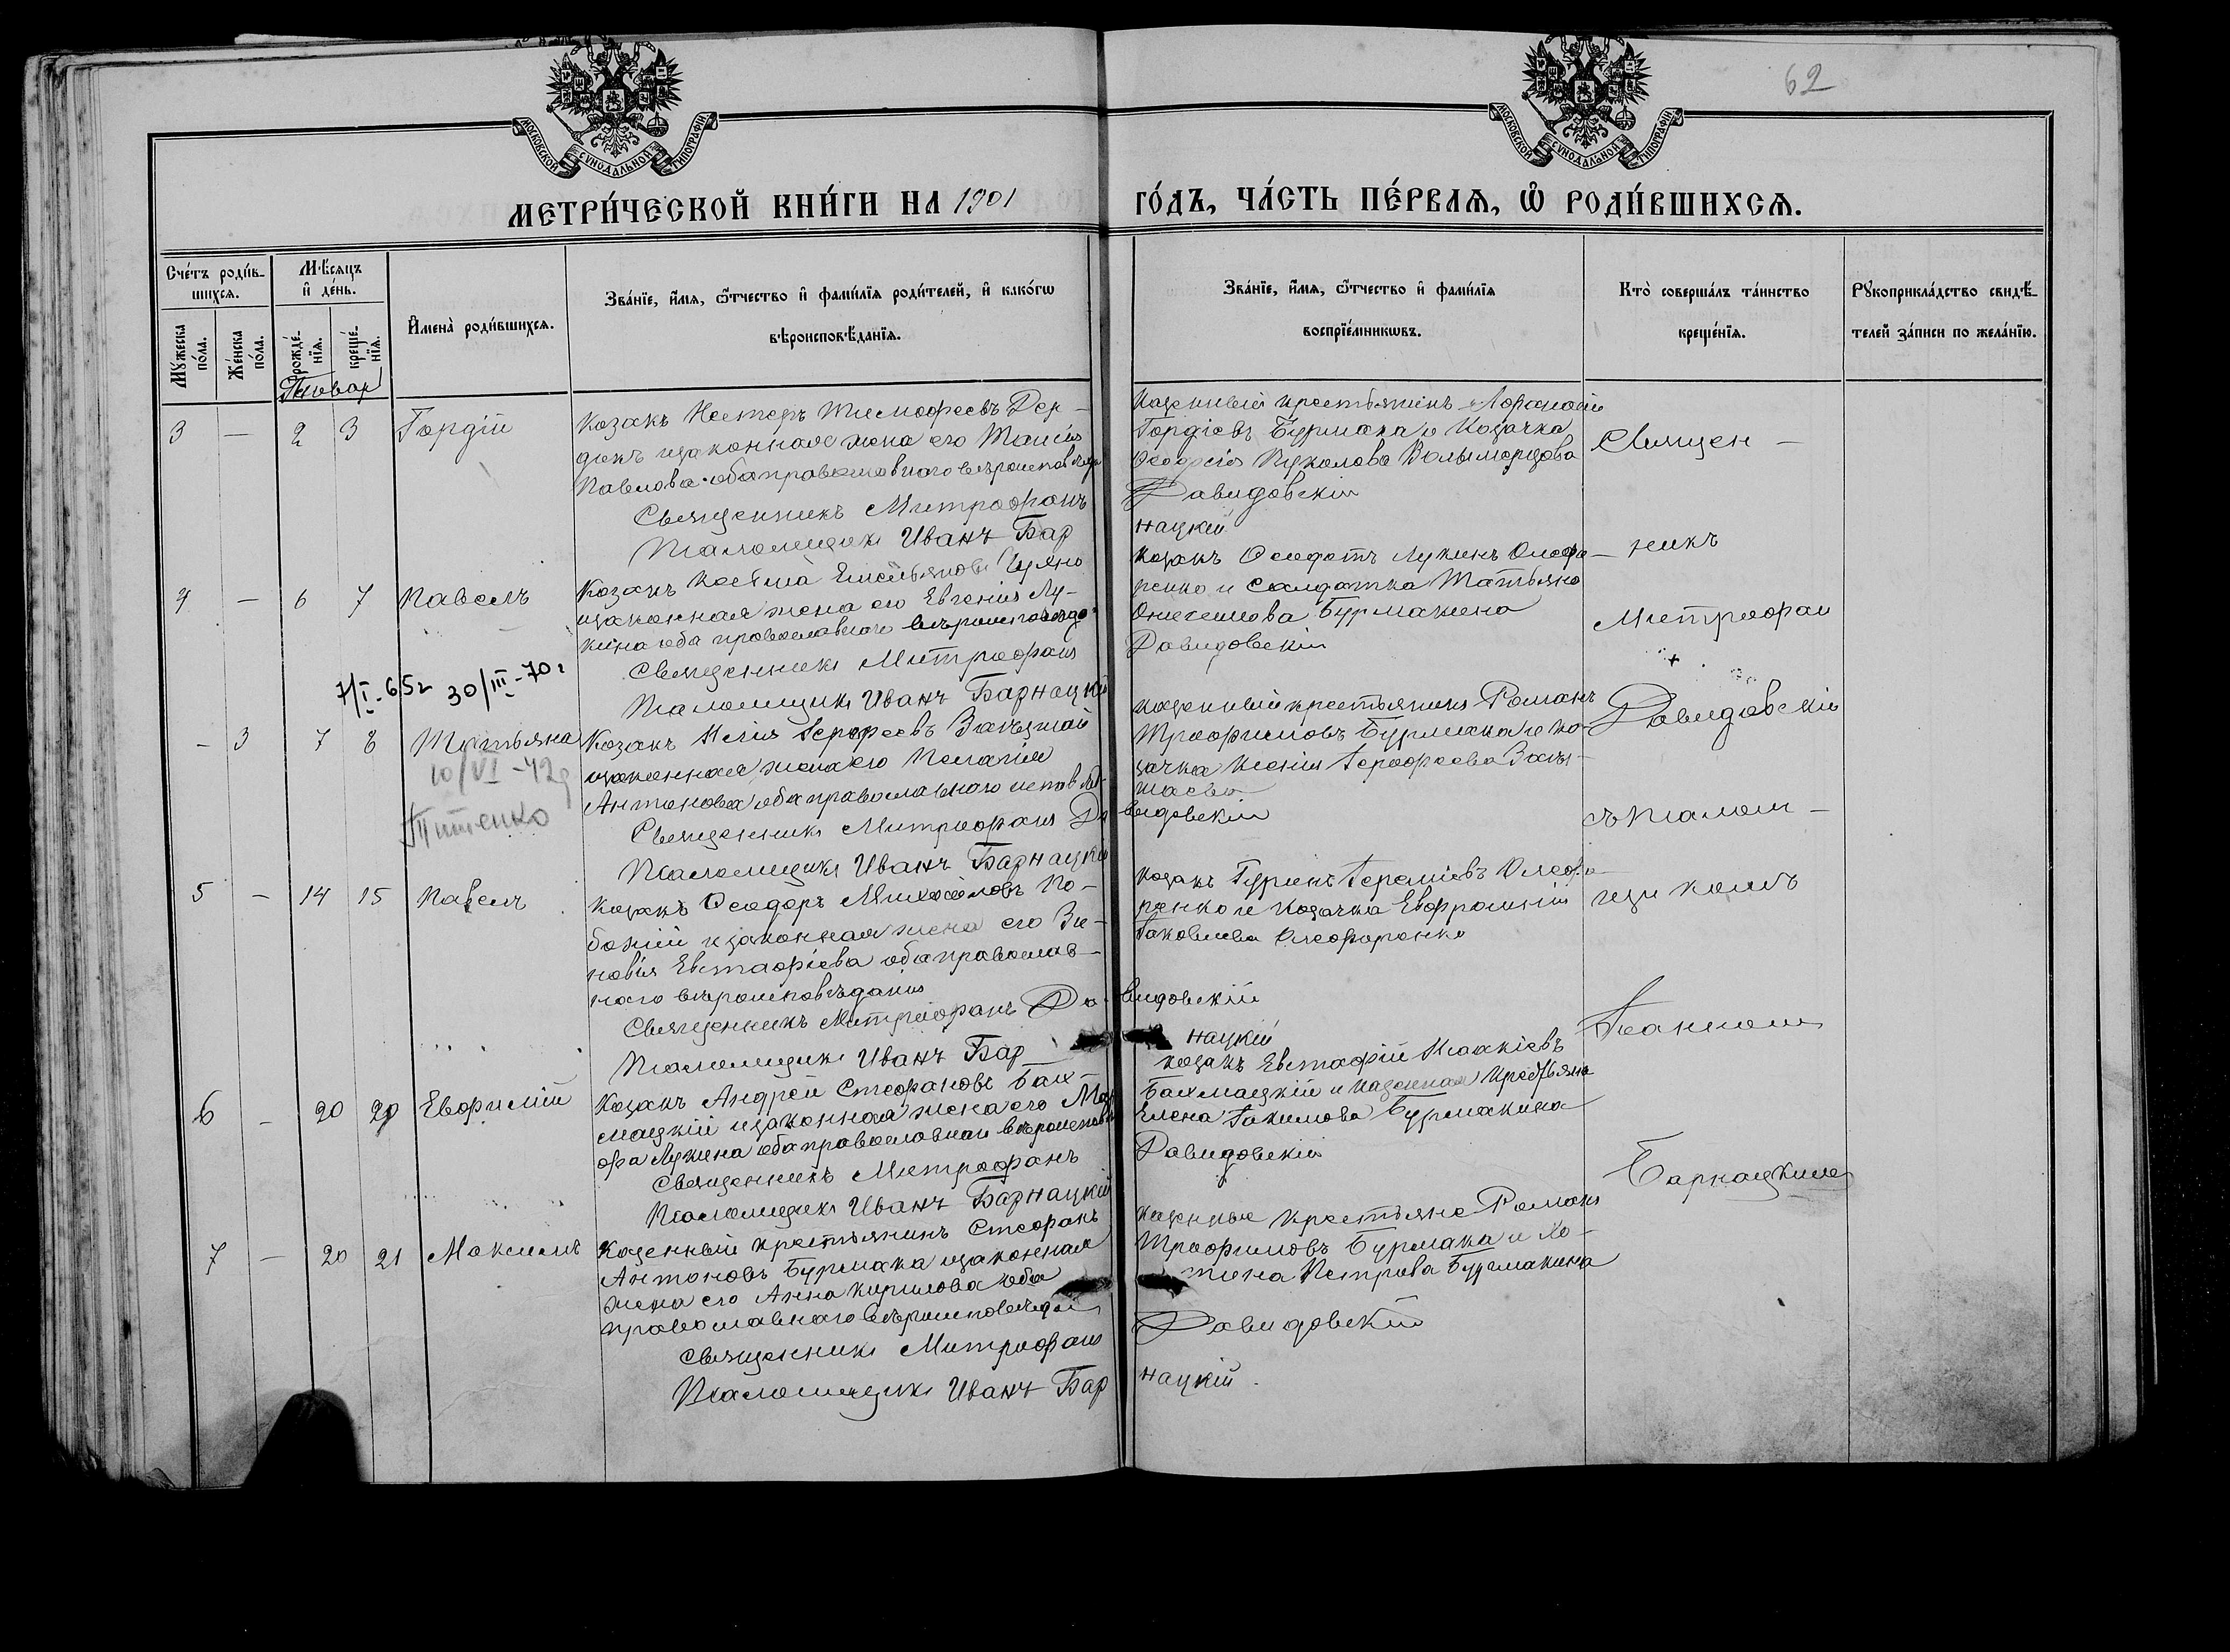 62
МОСКОВСКОЙ СѴНОДАЛЬНОЙ ТИПОГРАФІИ
МОСКОВСКОЙ СѴНОДАЛЬНОЙ ТИПОГРАФІИ
МЕТРИ́ЧЕСКОЙ КНИ́ГИ НА 1901 ГО́ДЪ, ЧА́СТЬ ПЕ́РВАѦ, Ѡ҆ РОДИ́ВШИХСѦ.
Сче́тъ роди́вшихсѧ.
Мꙋ́жеска по́ла.
Же́нска по́ла.
Мѣ́сѧцъ и҆ де́нь.
рожде́нїѧ.
креще́нїѧ.
И҆мена̀ роди́вшихсѧ.
Зва́нїе, и҆́мѧ, ѻ҆́тчество и҆ фами́лїѧ роди́телей, и҆ како́гѡ
вѣроисповѣ́данїѧ.
Зва́нїе, и҆́мѧ, ѻ҆́тчество и҆ фами́лїѧ
воспрїе́мникѡвъ.
Кто̀ соверша́лъ та́инство
креще́нїѧ.
Рꙋкоприкла́дство свидѣ́телей за́писи по жела́нїю.
Январ
3 — 2 3 Гордій
Козакъ Нестеръ Тимофеевъ Дер-
дакъ изаконная жена его Таисія
Павлова оба православного вероисповед
Священникъ Митрофанъ Давидовскій
Псаломщикъ Иванъ Барнацкій
Казенный крестьянинъ
Гордіевъ Бурмака и Козачка
Феодосія
4 — 6 7 Павелъ
Козакъ Косьма Емельяновъ
изаконная жена его Евгенія Лу-
кина оба православного вероисповеда
Священникъ Митрофанъ Давидовскій
Псаломщикъ Иванъ Барнацкій
Козакъ Феодотъ Лукинъ Олефи-
ренко и Солдатка Татьяна
Бурмакина
7/I-65г 30/III-70г
— 3 7 8 Татьяна
10/VI-42г
Титенко
Козакъ Илія Іерофеевъ
изаконная жена его Пелагія
Антонова оба православного исповед
Священникъ Митрофанъ Давидовскій
Псаломщикъ Иванъ Барнацкій
Казенный крестьянинъ Романъ
Трофимовъ Бурмака и ко-
зачка Ксенія Іерофеева
5 — 14 15 Павелъ
Козакъ Феодоръ Михайловъ По-
божій изаконная жена его Зи-
новія Евстафіева оба православ-
ного вероисповеданія
Священникъ Митрофанъ Давидовскій
Псаломщикъ Иванъ Барнацкій
Козакъ Гуринъ Іереміевъ Олефи-
ренко и Козачка Евфросинія
Яковлева Олефиренко
6 — 20 20 Евфимій
Козакъ Андрей Стефановъ Бах-
мацкій изаконная жена его Мар
фа Лукина оба православнаи вероисповед
Священникъ Митрофанъ Давидовскій
Псаломщикъ Иванъ Барнацкій
Козакъ Евстафій Исакіевъ
Бахмацкій и Казенная Крестьяна
Елена Іакимова Бурмакина
7 — 20 21 Максимъ
Казенный крестьянинъ Стефанъ
Антоновъ Бурмака изаконная
жена его Анна Кирилова оба
православнаго вероисповедан
Священникъ Митрофанъ Давидовскій
Псаломщикъ Иванъ Барнацкій.
Казенные крестьяне Романъ
Трофимовъ Бурмака и
Петрова Бурмакина
Священ-
никъ
Митрофан
Давидовскій
съ псалом-
щикомъ
Іоанном
Барнацким